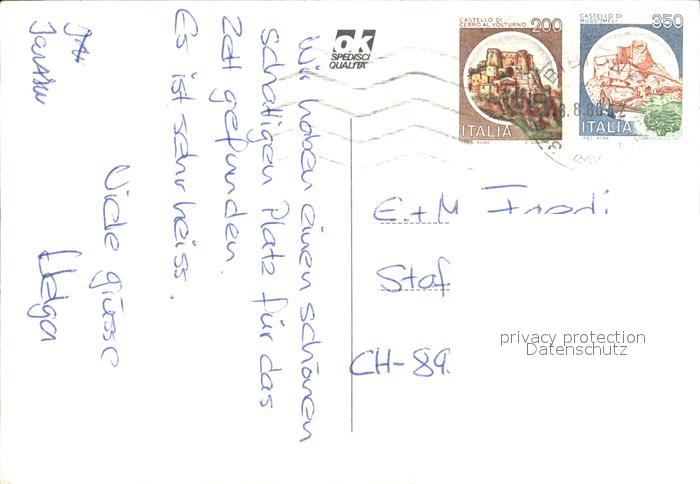 Wir haben einen schönen
schattigen Platz für das
Zelt gefunden.
Es ist sehr heiss.
Viele grüsse
Helga
ok
SPEDISCI
QUALITÀ
CASTELLO DI
CERRO AL VOLTURNO 200
ITALIA
CASTELLO DI
MUSSOMELI 350
ITALIA
E.+M
Staf
CH-89
privacy protection
Datenschutz